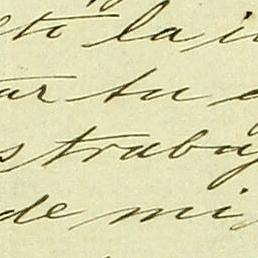 la i
ar tu
s trabaj
de mi